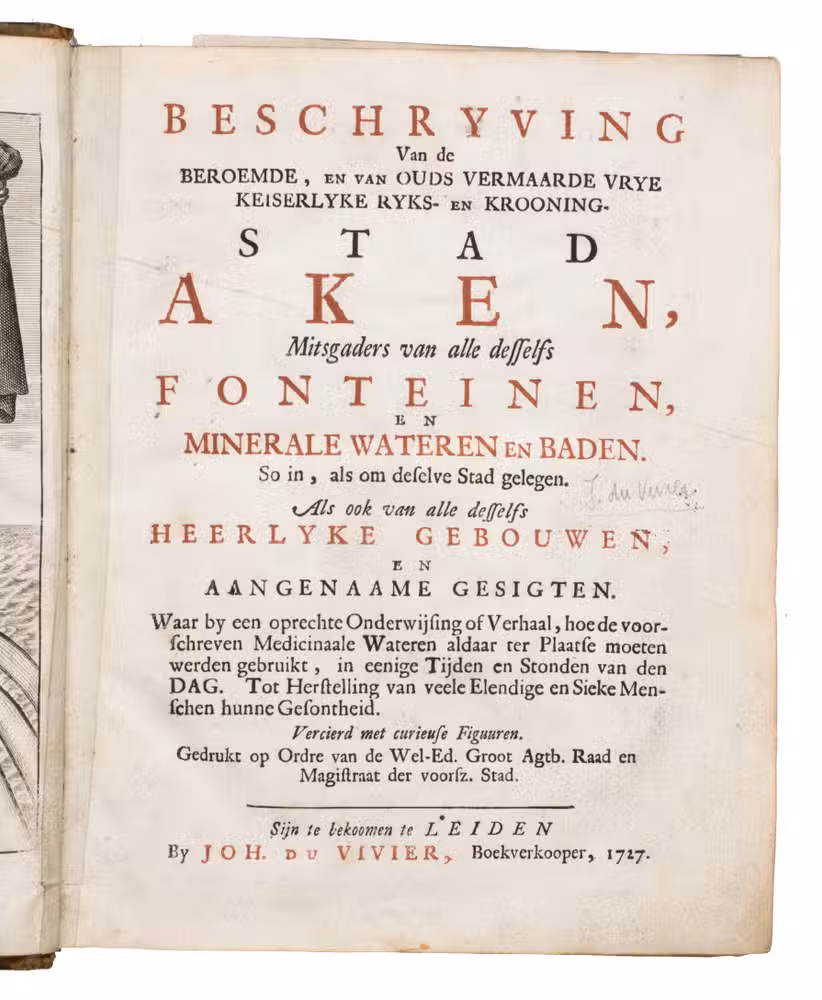 BESCHRYVING
Van de
BEROEMDE, EN VAN OUDS VERMAARDE VRYE
KEISERLYKE RYKS- EN KROONING-
STAD
AKEN,
Mitsgaders van alle deſſelfs
FONTEINEN,
EN
MINERALE WATEREN EN BADEN.
So in, als om deſelve Stad gelegen.
J. du Vivier
Als ook van alle deſſelfs
HEERLYKE GEBOUWEN,
EN
AANGENAAME GESIGTEN.
Waar by een oprechte Onderwijſing of Verhaal, hoe de voor-
ſchreven Medicinaale Wateren aldaar ter Plaatſe moeten
werden gebruikt, in eenige Tijden en Stonden van den
DAG. Tot Herſtelling van veele Elendige en Sieke Men-
ſchen hunne Geſontheid.
Vercierd met curieuſe Figuuren.
Gedrukt op Ordre van de Wel-Ed. Groot Agtb. Raad en
Magiſtraat der voorſz. Stad.
Sijn te bekoomen te L'EIDEN
By JOH. DU VIVIER, Boekverkooper, 1727.